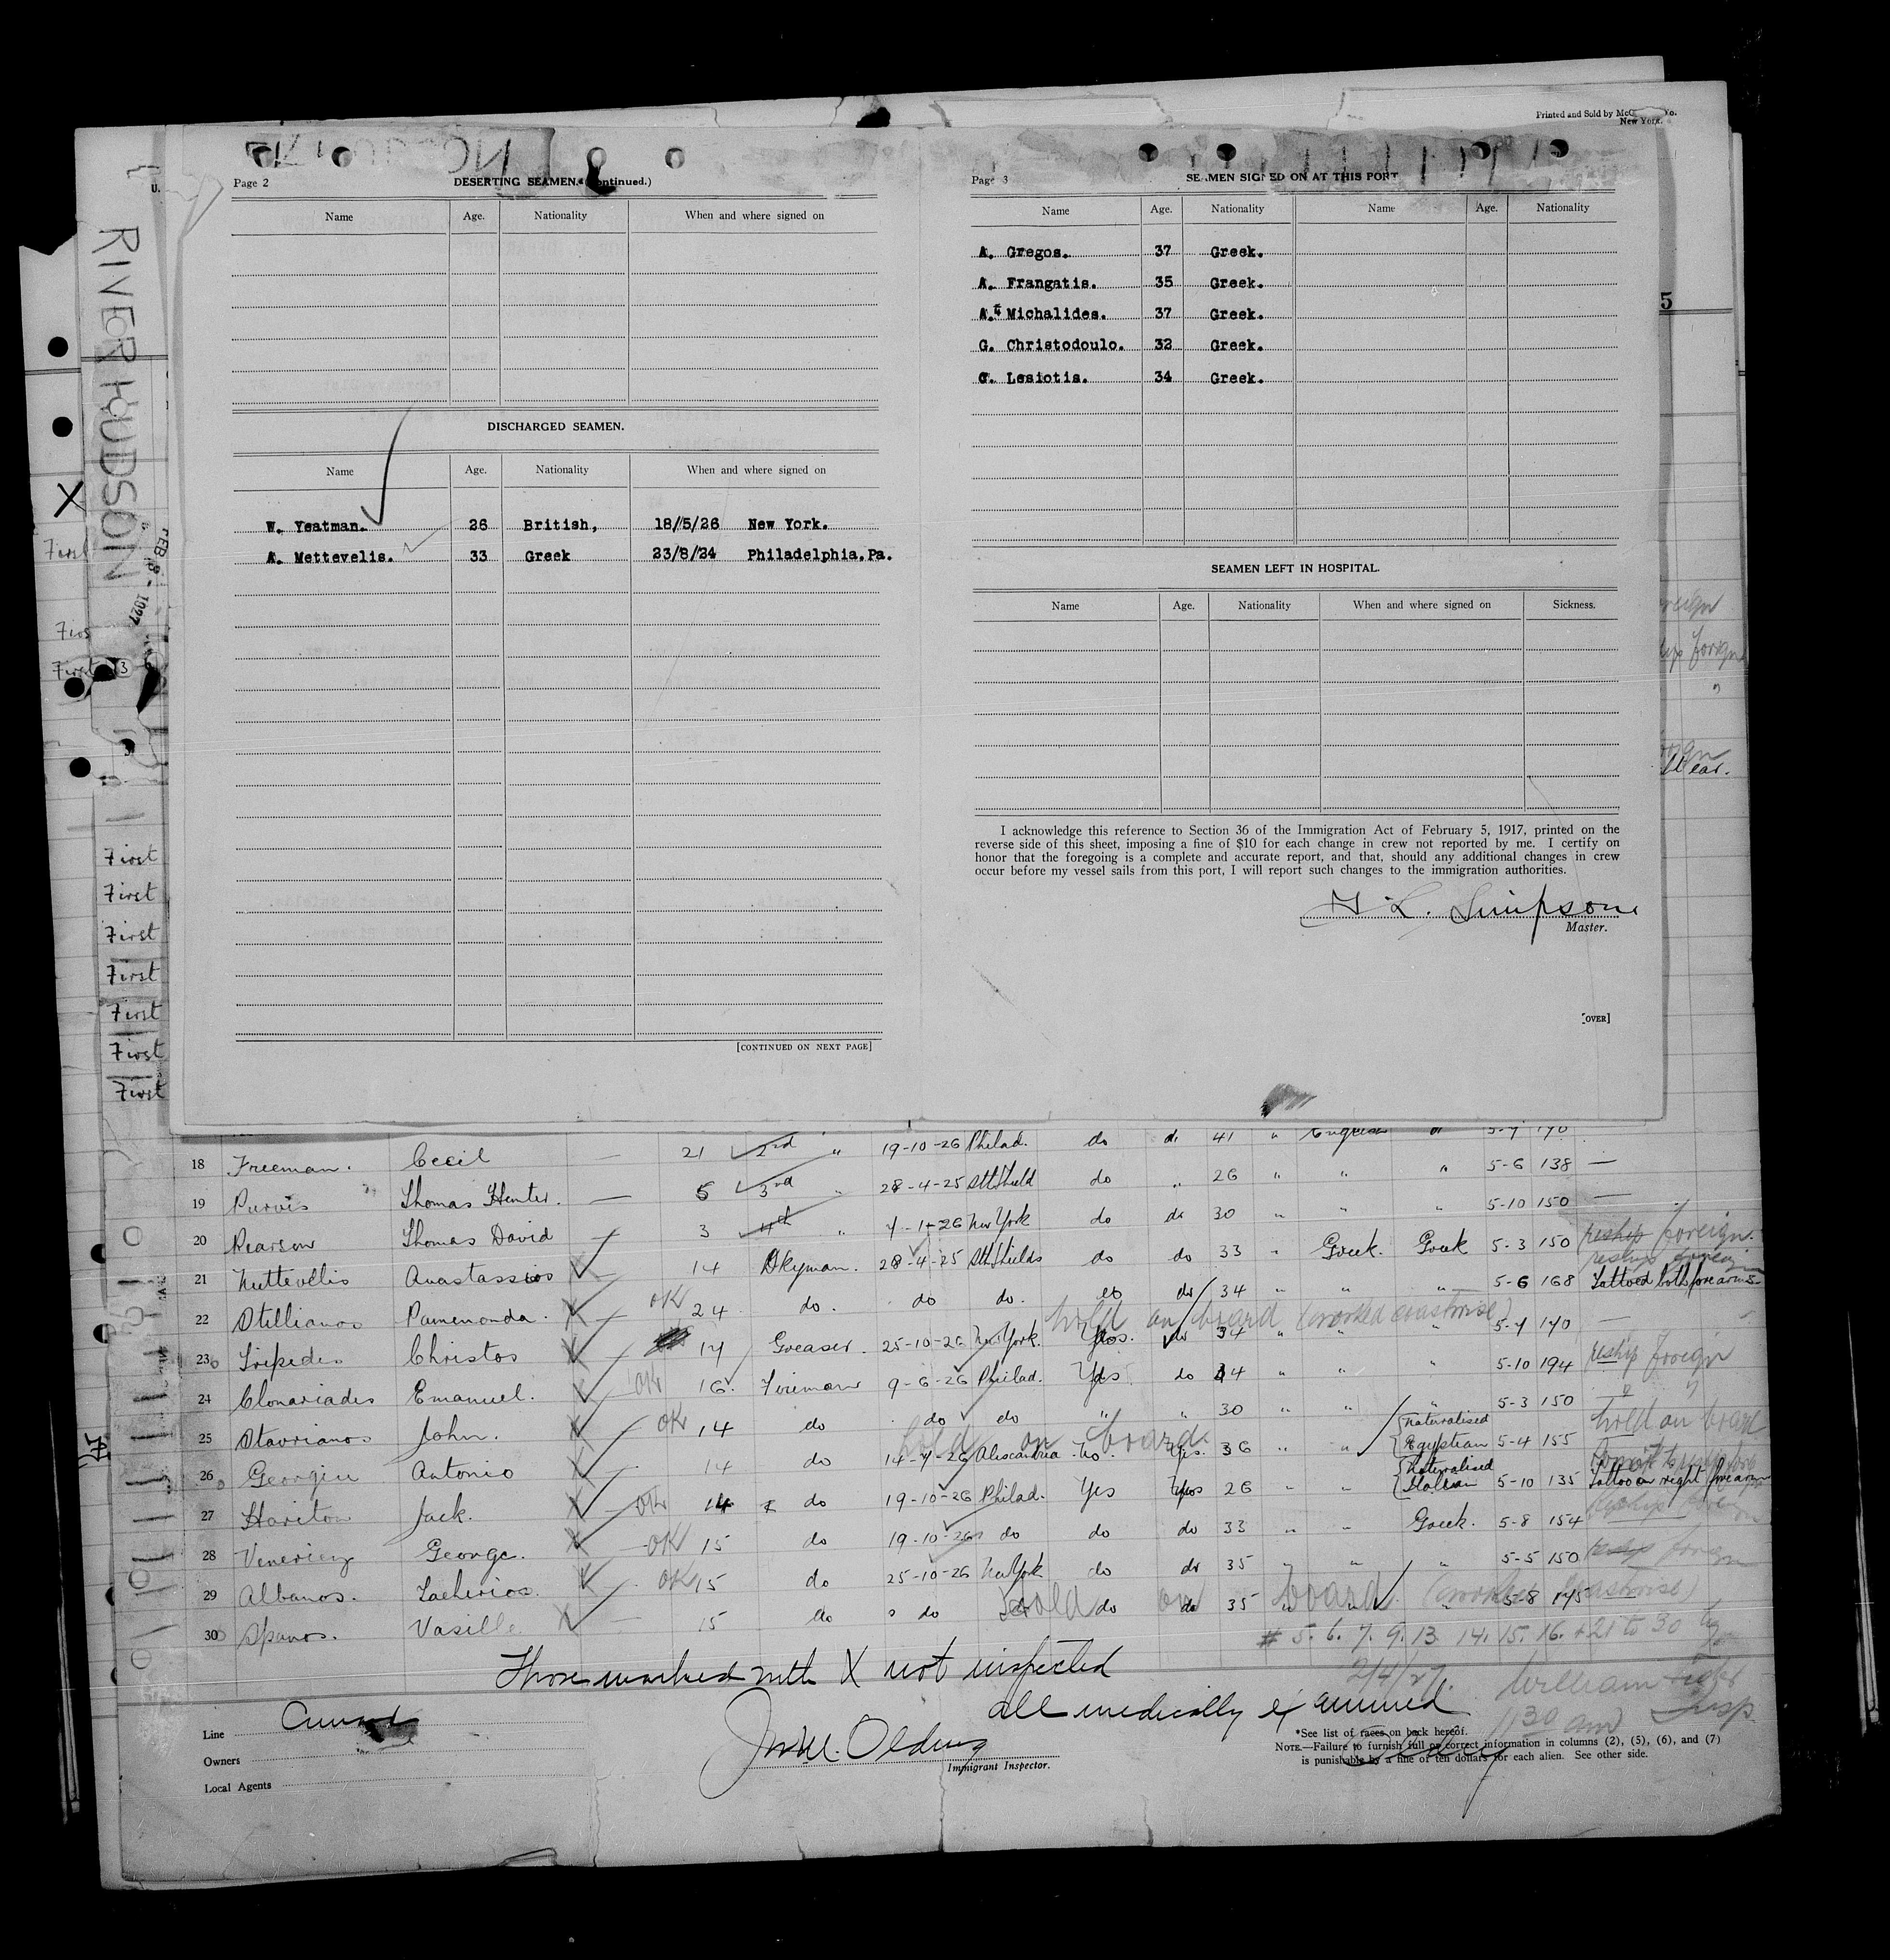 Printed and Sold by
New York.
Page 2 DESERTING SEAMEN. (Continued.)
Name Age. Nationality When and where signed on
DISCHARGED SEAMEN.
Name Age. Nationality When and where signed on
W. Yeatman. 26 British, 18/5/26 New York.
A. Mettevelis. 33 Greek 23/8/24 Philadelphia.Pa.
[CONTINUED ON NEXT PAGE]
Page 3 SEAMEN SIGNED ON AT THIS PORT
Name Age. Nationality Name Age. Nationality
A. Gregos. 37 Greek.
A. Frangatis. 35 Greek.
A. Michalides. 37 Greek.
G. Christodoulo. 32 Greek.
G. Lesiotis. 34 Greek.
SEAMEN LEFT IN HOSPITAL.
Name Age. Nationality When and where signed on Sickness.
I acknowledge this reference to Section 36 of the Immigration Act of February 5, 1917, printed on the
reverse side of this sheet, imposing a fine of $10 for each change in crew not reported by me. I certify on
honor that the foregoing is a complete and accurate report, and that, should any additional changes in crew
occur before my vessel sails from this port, I will report such changes to the immigration authorities.
L. Simpson
Master.
[OVER]
RIVER HUDSON
FEB 8 - 1927
First
First
First
First
First
First
First
First
First
18 Freeman. Cecil — 21 2nd " 19-10-26 Philad. do do 41 "
19 Purvis Thomas Hunter. — 5 3rd " 28-4-25 Sth Shield do " 26 " " " 5-6 138 —
20 Pearson Thomas David — 3 4th " New York do do 30 " " " 5-10 150 —
21 Anastassios 14 Dkyman. 28-4-25 Sth Shields do do 33 " Greek. Greek 5-3 150 reship foreign.
22 Stellianos Pamenonda. OK 24 do. do do. do do 34 " " " 5-6 168 Tattoed both forearms
hold on board (worked coastwise)
23 Christos 14 Greaser. 25-10-26 New York. Yes. do 34 " " " 5-7 170 —
24 Clonariades Emanuel. OK 16 Fireman 9-6-26 Philad. Yes do 44 " " " 5-10 194 reship foreign
25 Stavrianos John. OK 14 do do do " " 30 " " " 5-3 150
hold on board
26 Antonio 14 do 14-7-26 Alexandria No. Yes. 36 " " Naturalised Egyptian 5-4 155 hold on board
27 Hariton Jack. OK 14 do 19-10-26 Philad. Yes Yes 26 " " Naturalised Italian 5-10 135 Tattoo on right forearm
28 George. OK 15 do 19-10-26 do do do 33 " " Greek. 5-8 154 reship foreign
29 Albanos. Zacherios. OK 15 do 25-10-26 New York do do 35 " " " 5-5 150 reship foreign
30 Spanos. Vasille 15 do " do do do do 35 " " " 5-8 175
hold on board (worked coastwise)
# 5. 6. 7. 9. 13. 14. 15. 16. + 21 to 30
Those marked with X not inspected
2/4/27.
all medically examined
William
Insp
1130 am
Line Cunard
Owners
Local Agents
Olding
Immigrant Inspector.
*See list of races on back hereof.
NOTE.—Failure to furnish full or correct information in columns (2), (5), (6), and (7)
is punishable by a fine of ten dollars for each alien. See other side.